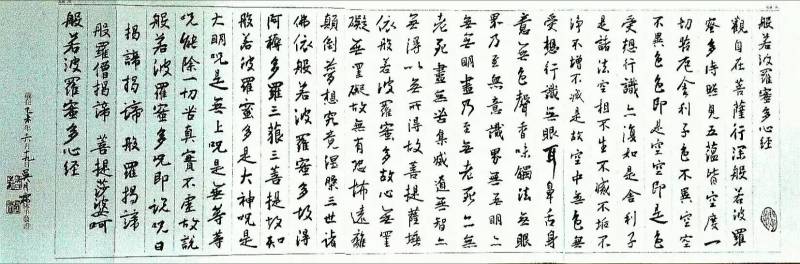 般若波羅蜜多心经
觀自在菩薩行深般若波羅
蜜多時照見五蕴皆空度一
切苦厄舍利子色不異空空
不異色色即是空空即是色
受想行識亦復如是舍利子
是諸法空相不生不滅不垢不
淨不增不減是故空中無色無
受想行識無眼耳鼻舌身
意無色聲香味觸法無眼
界乃至無意識界無無明亦
無無明盡乃至無老死亦無
老死盡無苦集滅道無智亦
無得以無所得故菩提薩埵
依般若波羅蜜多故心無罣
礙無罣礙故無有恐怖遠離
顛倒夢想究竟涅槃三世諸
佛依般若波羅蜜多故得
阿耨多羅三藐三菩提故知
般若波羅蜜多是大神咒是
大明咒是無上咒是無等等
咒能除一切苦真實不虛故說
般若波羅蜜多咒即説咒曰
揭諦揭諦 般羅揭諦
般羅僧揭諦 菩提莎婆呵
般若波羅蜜多心经